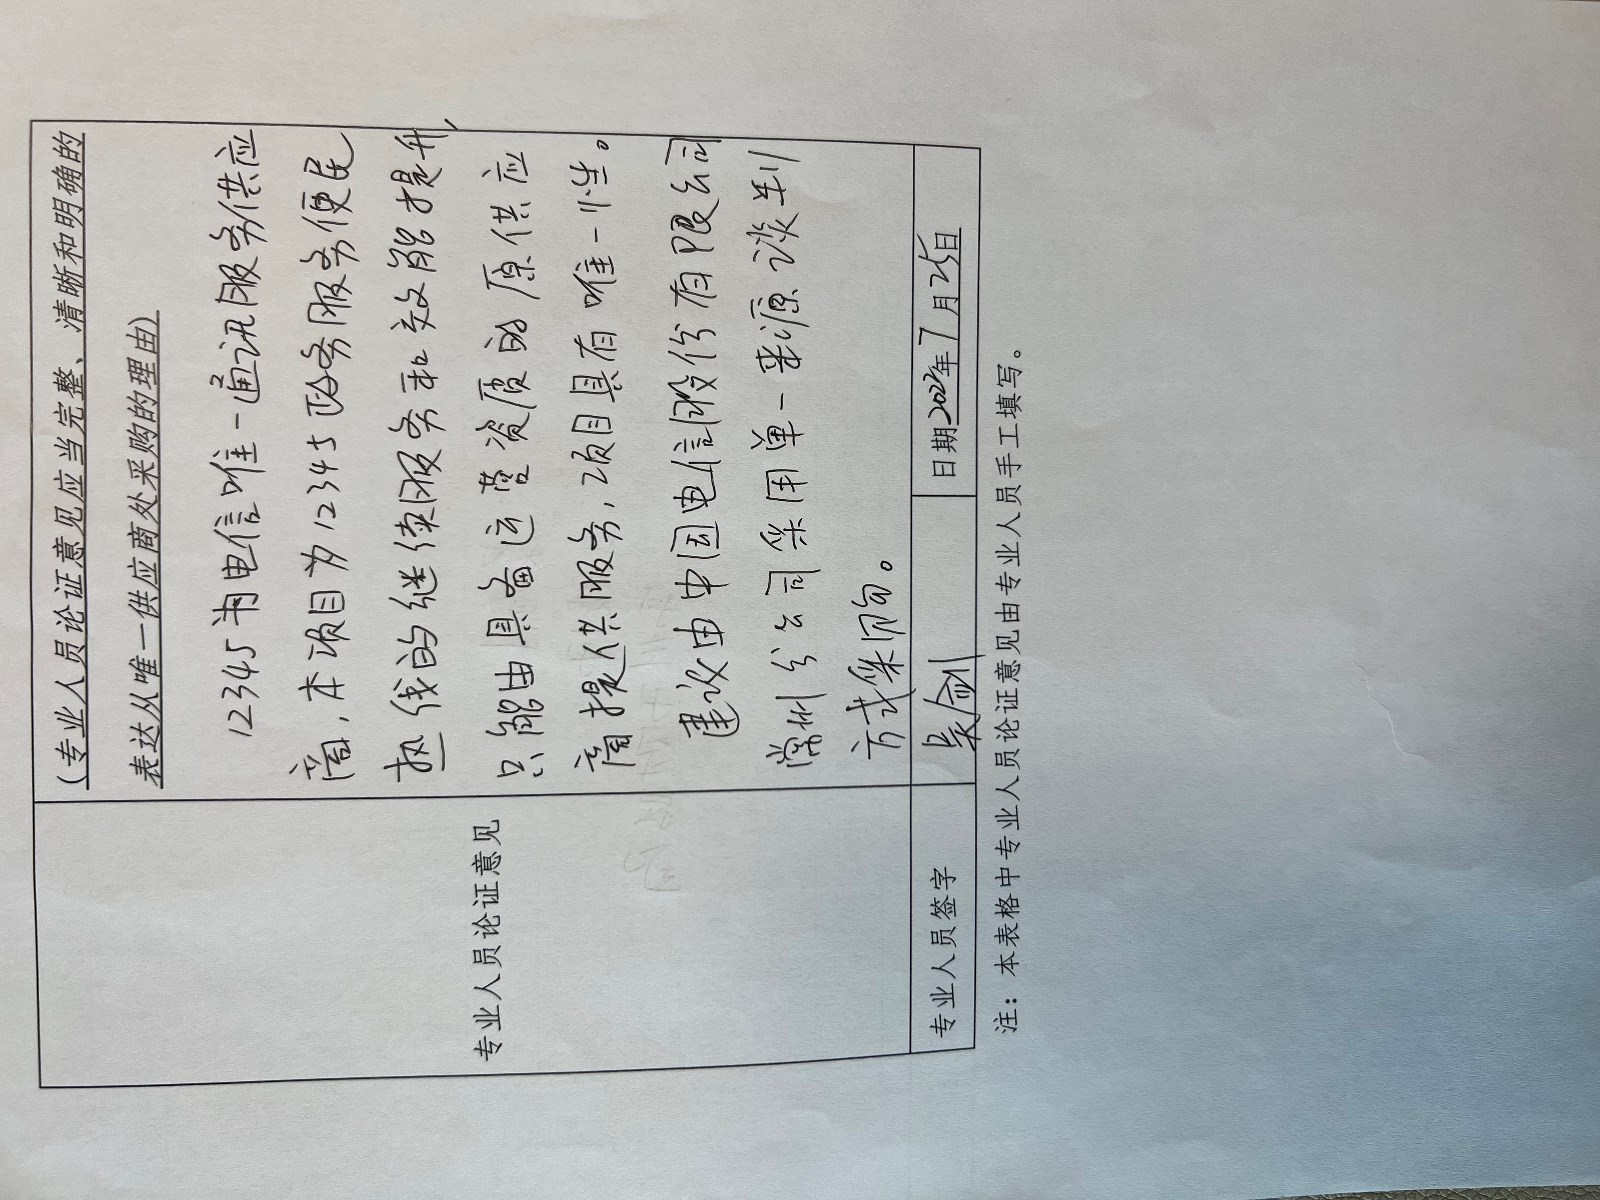 (专业人员论证意见应当完整、清晰和明确的
表达从唯一供应商处采购的理由)
12345为电信唯一通讯服务供应
商,本项目为12345政务服务便民
热线的继续服务和效能提升,
只能由具备运营资质的原供应
商提供服务,项目具有唯一性。
建议由中国电信股份有限公司
常州分公司采用单一来源谈判
方式采购。
专业人员论证意见
专业人员签字
吴剑
日期2022年7月25日
注:本表格中专业人员论证意见由专业人员手工填写。